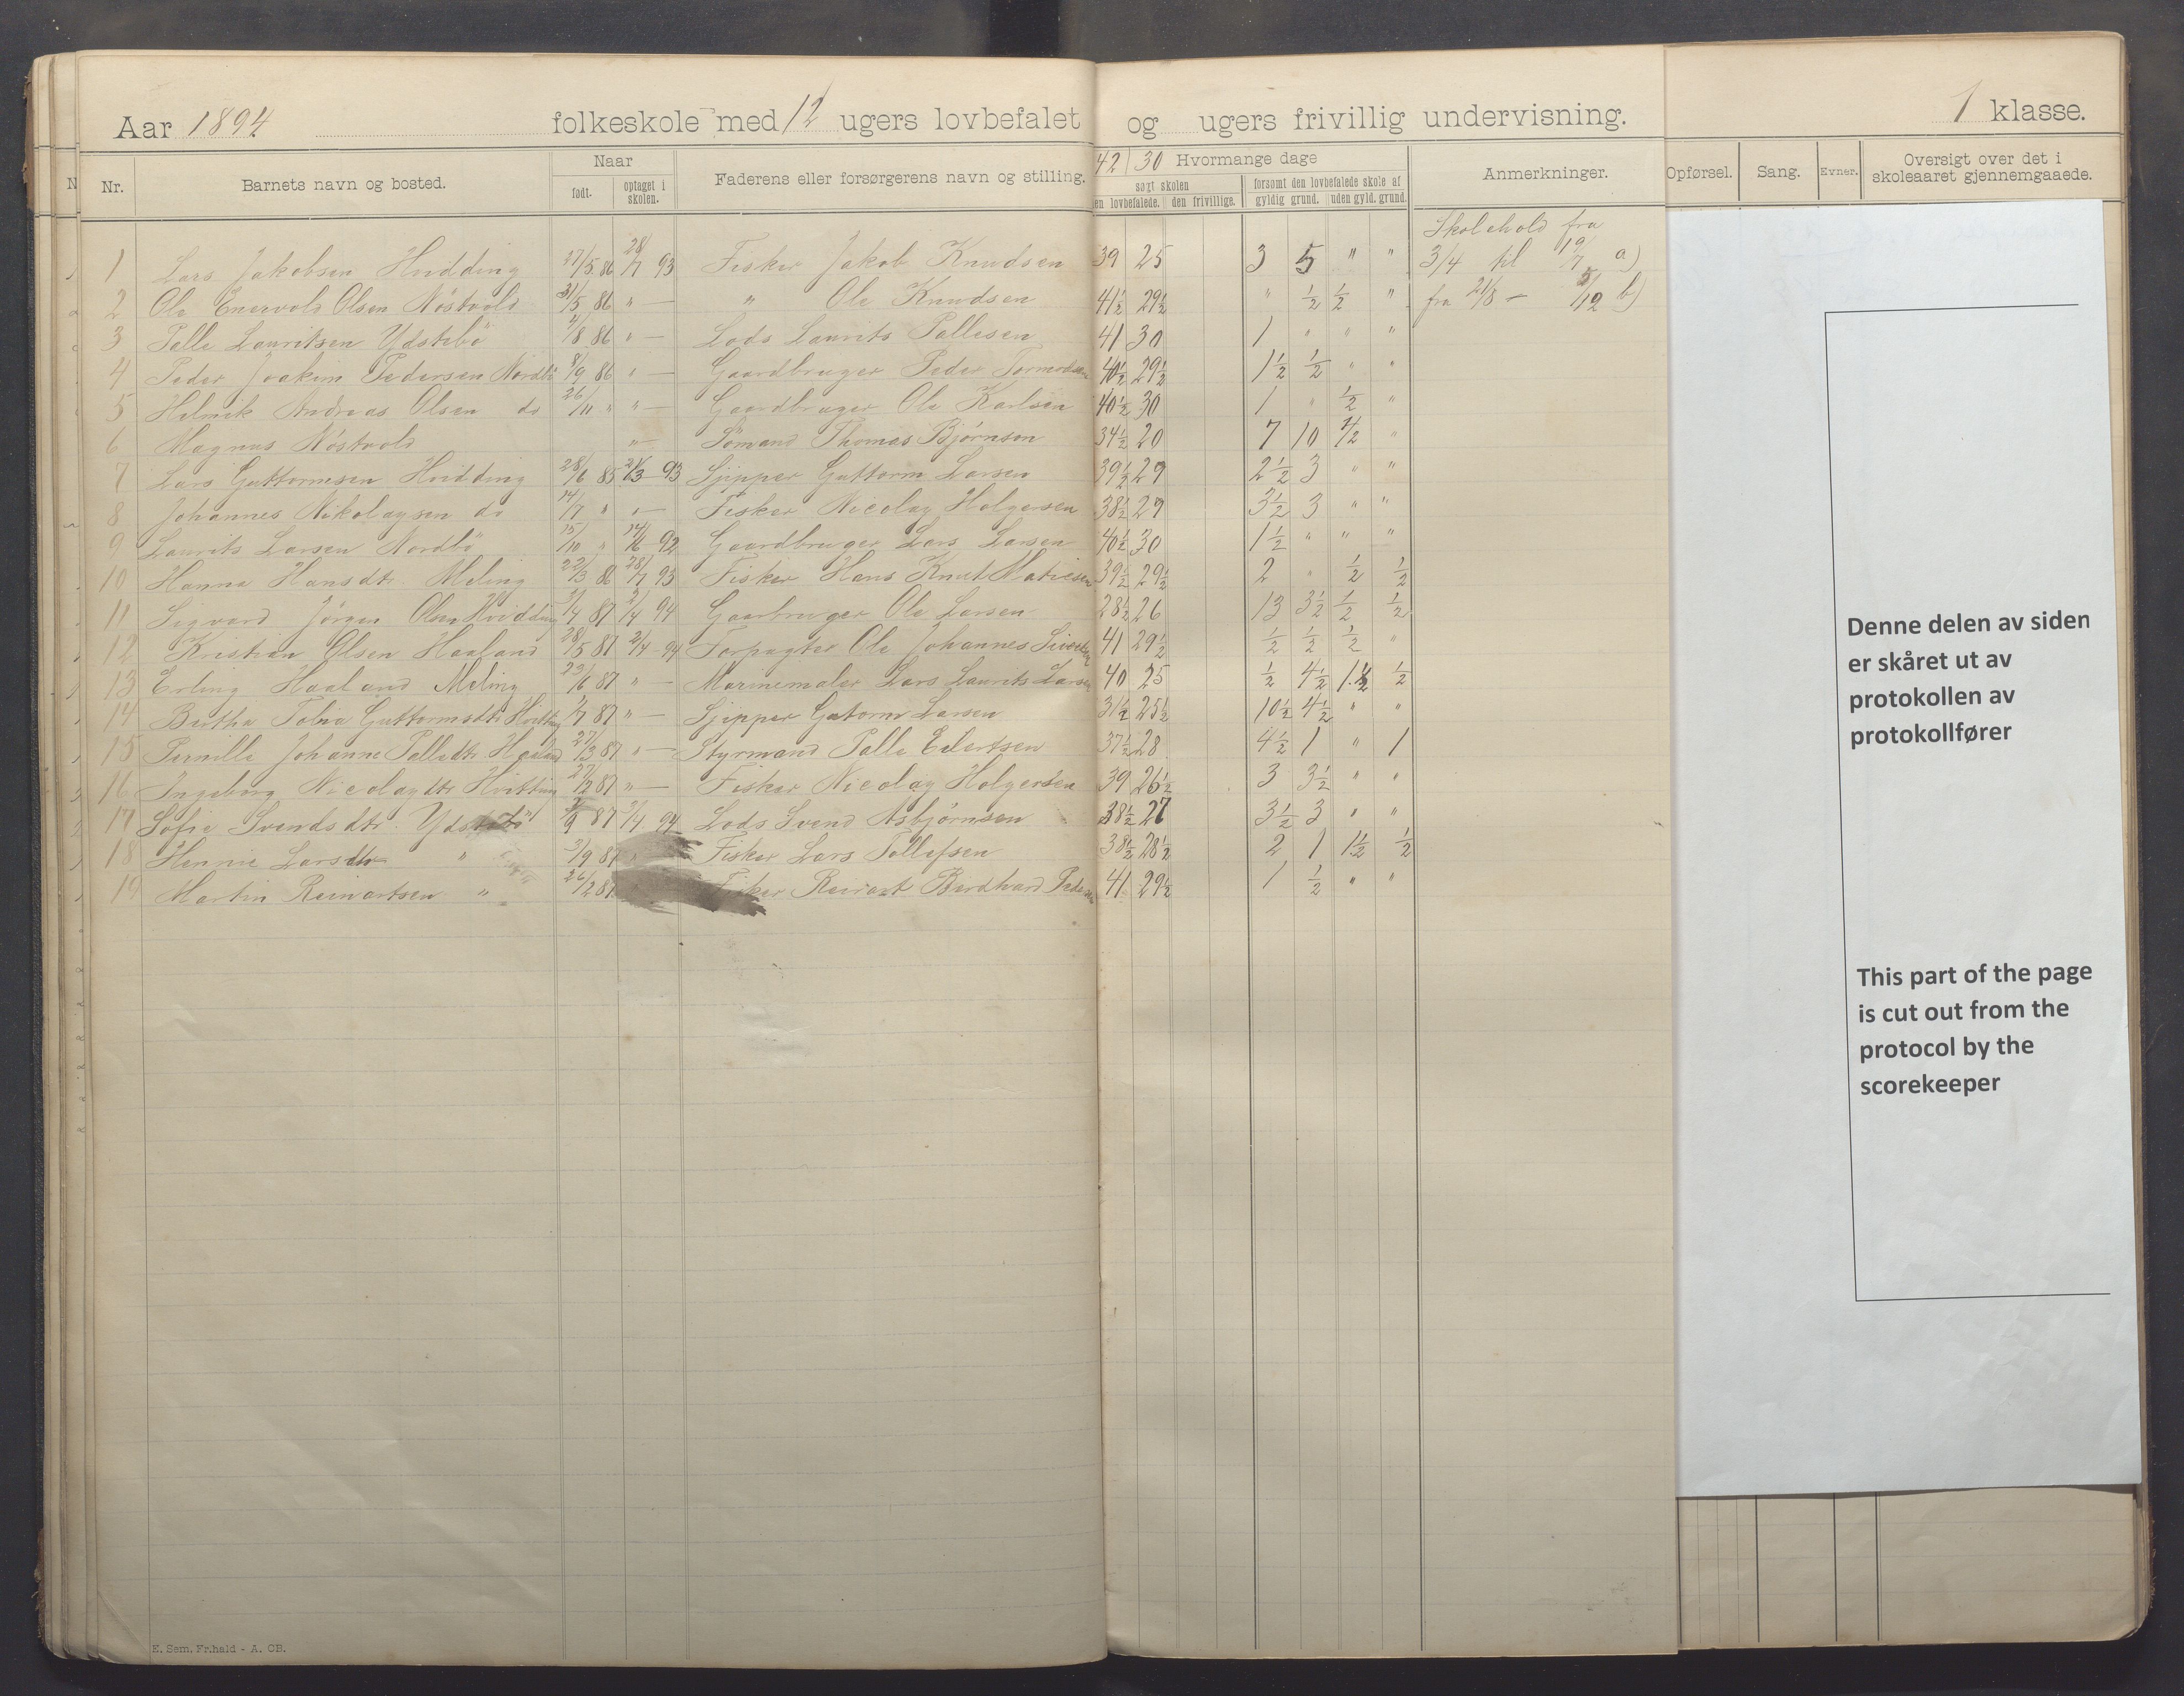 Aar 1894 folkeskole med 12 ugers lovbefalet og ugers frivillig undervisning. 1 klasse.
Nr. Barnets navn og bosted. Naar født. optaget i skolen. Faderens eller forsørgerens navn og stilling. 42 30 Hvormange dage søgt skolen den lovbefalede. den frivillige. forsømt den lovbefalede skole af gyldig grund. uden gyld. grund. Anmerkninger. Opførsel. Sang. Evner. Oversigt over det i skoleaaret gjennemgaaede.
Skolehold fra
1 Lars Jakobsen Hvidding 27/5 86 28/7 93 Fisker Jakob Knudsen 39 25 3 5 " " 3/4 til 19/7 a)
2 Ole Enevold Olsen Nöstvold 31/5 86 " — " Ole Knudsen 41½ 29½ " ½ ½ " fra 21/8 — 5/12 b)
3 Palle Lauritsen Ydstebö 4/8 86 " — Lods Laurits Pallesen 41 30 1 " " "
4 Peder Joakim Pedersen Nordbö 8/9 86 " — Gaardbruger Peder Tormodsen 40½ 29½ 1½ ½ " "
5 Helmik Andreas Olsen do 26/11 " " — Gaardbruger Ole Karlsen 40½ 30 1 " ½ "
6 Magnus Nöstvold " — Sömand Thomas Bjørnsen 34½ 20 7 10 ½ "
7 Lars Guttormsen Hvidding 28/6 85 21/3 93 Sjipper Guttorm Larsen 39½ 29 2½ 3 " "
8 Johannes Nikolaysen do 14/7 " " — Fisker Nicolay Holgersen 38½ 27 3½ 3 " "
9 Laurits Larsen Nordbö 15/10 " 14/6 92 Gaardbruger Lars Larsen 40½ 30 1½ " " "
10 Hanna Hansdtr. Meling 22/3 86 28/7 93 Fisker Hans Knut Matiesen 39½ 29½ 2 " ½ ½
11 Sigvard Jörgen Olsen Hvidding 3/4 87 2/4 94 Gaarbruger Ole Larsen 28½ 26 13 3½ ½ ½
12 Kristian Olsen Haaland 28/5 87 2/4 - 94 Forpagter Ole Johannes Sivertsen 41 29½ ½ ½ ½ "
13 Erling Haaland Meling 23/6 87 " — Marinemaler Lars Laurits Larsen 40 25 ½ 4½ 1½ ½
14 Bertha Tobia Guttormsdtr Hvitting 1/7 87 " — Sjipper Gutorm Larsen 31½ 25½ 10½ 4½ " "
15 Pernille Johanne Palledtr. Haaland 27/3 87 " — Styrmand Palle Edertsen 37½ 28 4½ 1 " 1
16 Ingeborg Nicolaydtr Hvitting 27/2 87 " — Fisker Nicolay Holgersen 39 26½ 3 3½ " "
17 Sofie Svendsdtr. Ydstebö 87 2/4 94 Lods Svend Asbjørnsen 38½ 27 3½ 3 " "
18 Hennie Larsdtr " 3/9 87 Fisker Lars Tollefsen 38½ 28½ 2 1 1½ ½
19 Martin Reinartsen " 26/2 87 Fisker Reinart Berdhard Pedersen 41 29½ 1 ½ " "
Denne delen av siden
er skåret ut av
protokollen av
protokollfører
This part of the page
is cut out from the
protocol by the
scorekeeper
E. Sem, Fr.hald - A. OB.